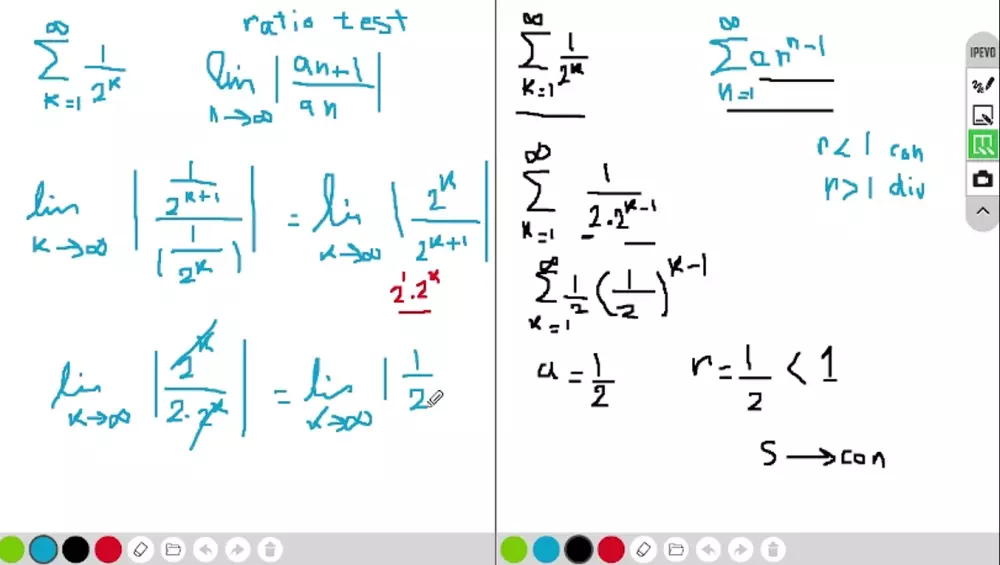 ratio test
∞ ∑ k=1 1/2^k lim n→∞ |an+1/an|
lim k→∞ |(1/2^(k+1))/(1/2^k)| = lim k→∞ |2^k/2^(k+1)|
2^1·2^k
lim k→∞ |2^k/2·2^k| = lim k→∞ |1/2
∞ ∑ k=1 1/2^k
∞ ∑ n=1 ar^n-1
r<1 con
r>1 div
∞ ∑ k=1 1/2·2^(k-1)
∞ ∑ k=1 1/2 (1/2)^(k-1)
a = 1/2 r = 1/2 < 1
S → con
IPEVO